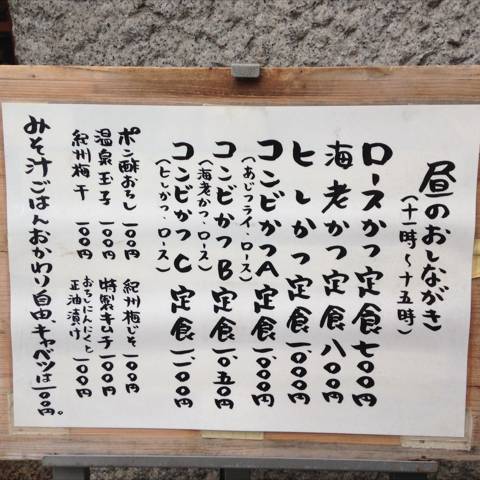 昼のおしながき
(十一時〜十五時)
ロースかつ定食七〇〇円
海老かつ定食八〇〇円
ヒレかつ定食一、〇〇〇円
コンビかつA定食一、〇〇〇円
(あじフライ・ロース)
コンビかつB定食一、〇五〇円
(海老かつ・ロース)
コンビかつC定食一、一〇〇円
(ヒレかつ・ロース)
ポン酢おろし一〇〇円
紀州梅じそ一〇〇円
温泉玉子一〇〇円
特製キムチ一〇〇円
紀州梅干一〇〇円
おろしにんにくと
正油漬け一〇〇円
みそ汁ごはんおかわり自由、キャベツは一〇〇円。